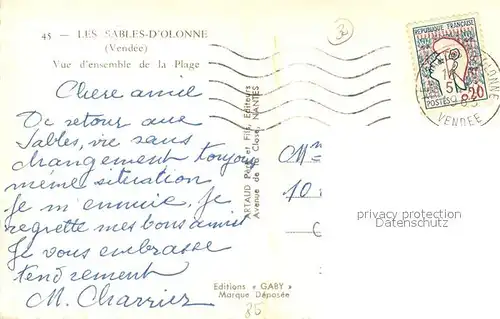 45 — LES SABLES-D'OLONNE
(Vendée)
Vue d'ensemble de la Plage
Chère amie
De retour aux
Sables, vie sans
changement toujours
même situation
je m'ennuie, je
regrette mes bons amis
Je vous embrasse
tendrement
M. Charrier
ARTAUD Père et Fils, Editeurs
Avenue de la Close, NANTES
Editions « GABY »
Marque Déposée
85
3
REPUBLIQUE FRANÇAISE
POSTES
0,20
VENDEE
Mme
10
privacy protection
Datenschutz